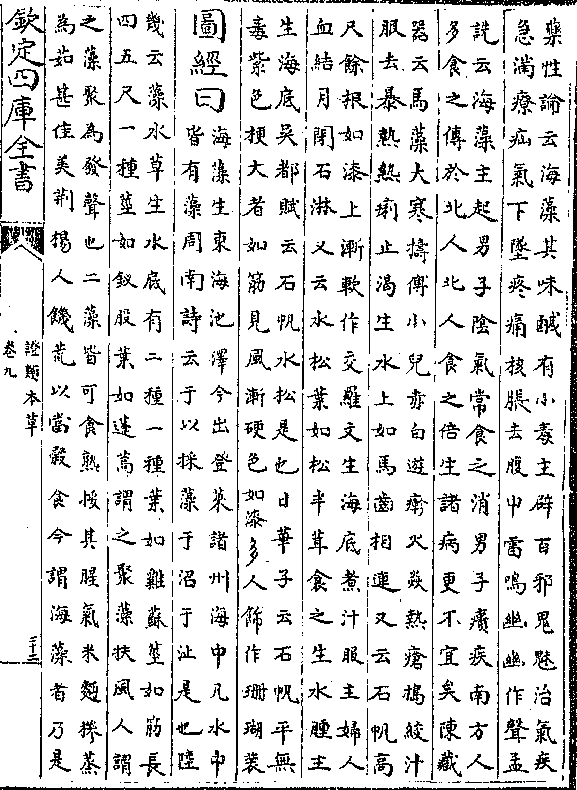 藥性論云海藻其味鹹有小毒主辟百邪鬼魅治氣疾
急滿療疝氣下墜疼痛核腫去腹中雷鳴幽幽作聲孟
詵云海藻主起男子陰氣常食之消男子㿉疾南方人
多食之傳於北人北人食之倍生諸病更不宜矣陳藏
器云馬藻大寒搗傅小兒赤白遊瘮火焱熱瘡搗絞汁
服去暴熱熱痢止渴生水上如馬齒相連又云石帆高
尺餘根如漆上漸軟作交羅文生海底煮汁服主婦人
血結月閉石淋又云水松葉如松丰茸食之主水腫生
生海底吳都賦云石帆水松是也日華子云石帆平無
毒紫色梗大者如筋見風漸硬色如漆多人飾作珊瑚裝
圖經曰海藻生東海池澤今出登萊諸州海中凡水中
皆有藻周南詩云于以採藻于沼于沚是也陸
幾云藻水草生水底有二種一種葉如雞蘇莖如筯長
四五尺一種莖如釵股葉如蓬蒿謂之聚藻扶風人謂
之藻聚為發聲也二藻皆可食熟挼其腥氣米麵糝蒸
為茹甚佳美荆揚人饑荒以當穀食今謂海藻者乃是
欽定四庫全書
證類本草
卷九
三十三